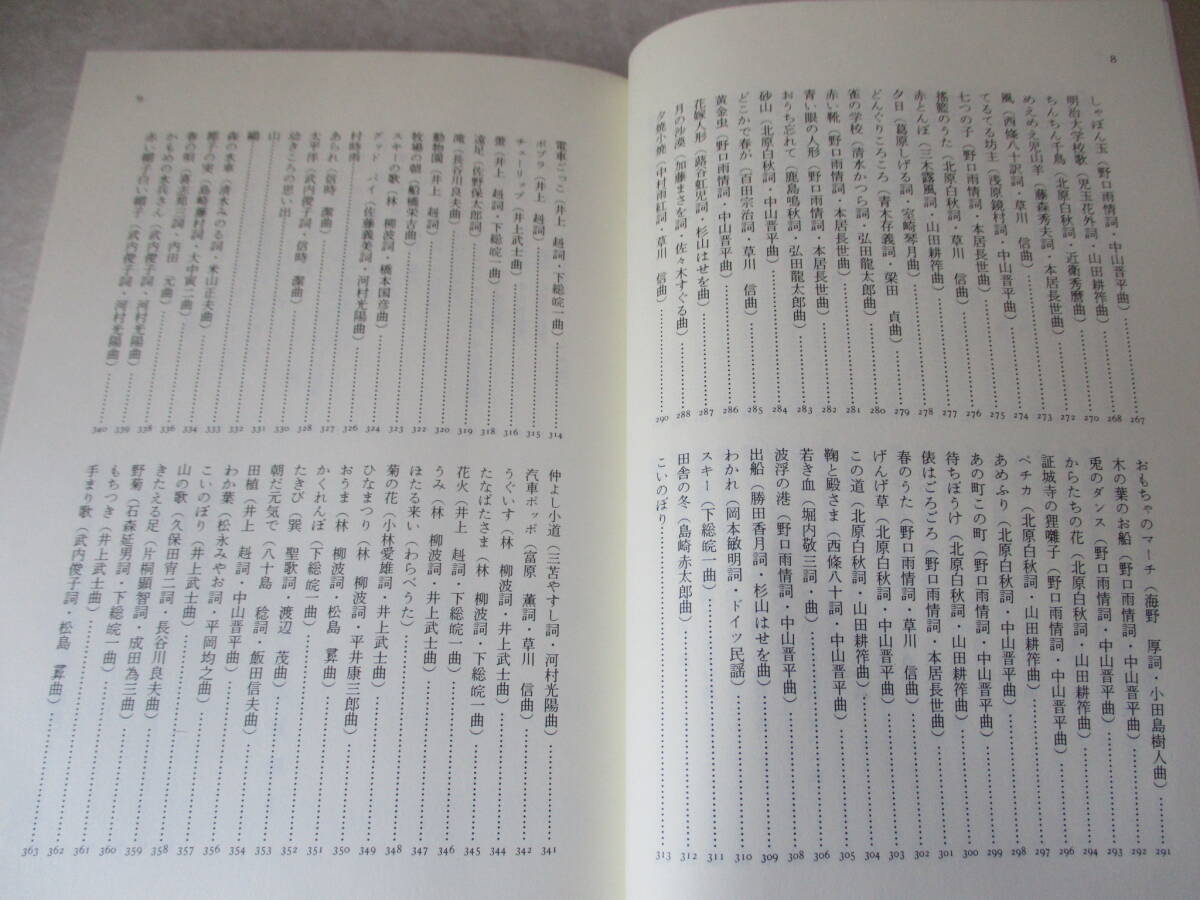 8
しゃぼん玉（野口雨情詞・中山晋平曲）……267
明治大学校歌（児玉花外詞・山田耕筰曲）……268
ちんちん千鳥（北原白秋詞・近衛秀麿曲）……270
めえめえ児山羊（藤森秀夫詞・本居長世曲）……272
風（西條八十訳詞・草川　信曲）……273
てるてる坊主（浅原鏡村詞・中山晋平曲）……274
七つの子（野口雨情詞・本居長世曲）……275
揺籃のうた（北原白秋詞・草川　信曲）……276
赤とんぼ（三木露風詞・山田耕筰曲）……277
夕日（葛原しげる詞・室崎琴月曲）……278
どんぐりころころ（青木存義詞・梁田　貞曲）……279
雀の学校（清水かつら詞・弘田龍太郎曲）……280
赤い靴（野口雨情詞・本居長世曲）……281
青い眼の人形（野口雨情詞・本居長世曲）……282
おうち忘れて（鹿島鳴秋詞・弘田龍太郎曲）……283
砂山（北原白秋詞・中山晋平曲）……284
どこかで春が（百田宗治詞・草川　信曲）……285
黄金虫（野口雨情詞・中山晋平曲）……286
花嫁人形（蕗谷虹児詞・杉山はせを曲）……287
月の沙漠（加藤まさを詞・佐々木すぐる曲）……288
夕焼小焼（中村雨紅詞・草川　信曲）……290
おもちゃのマーチ（海野　厚詞・小田島樹人曲）……291
木の葉のお船（野口雨情詞・中山晋平曲）……292
兎のダンス（野口雨情詞・中山晋平曲）……293
からたちの花（北原白秋詞・山田耕筰曲）……294
証城寺の狸囃子（野口雨情詞・中山晋平曲）……296
ペチカ（北原白秋詞・山田耕筰曲）……297
あめふり（北原白秋詞・中山晋平曲）……298
あの町この町（野口雨情詞・中山晋平曲）……299
待ちぼうけ（北原白秋詞・山田耕筰曲）……300
俵はごろごろ（野口雨情詞・本居長世曲）……301
春のうた（野口雨情詞・草川　信曲）……302
げんげ草（北原白秋詞・中山晋平曲）……303
この道（北原白秋詞・山田耕筰曲）……304
鞠と殿さま（西條八十詞・中山晋平曲）……305
若き血（堀内敬三詞・曲）……306
波浮の港（野口雨情詞・中山晋平曲）……308
出船（勝田香月詞・杉山はせを曲）……309
わかれ（岡本敏明詞・ドイツ民謡）……310
スキー（下総皖一曲）……311
田舎の冬（島崎赤太郎曲）……312
こいのぼり……313
9
電車ごっこ（井上　赳詞・下総皖一曲）……314
ポプラ（井上　赳詞）……315
チューリップ（井上武士曲）……316
螢（井上　赳詞・下総皖一曲）……318
遠足（佐野保太郎詞）……319
滝（長谷川良夫曲）……320
動物園（井上　赳詞）……322
牧場の朝（船橋栄吉曲）……323
スキーの歌（林　柳波詞・橋本国彦曲）……324
グッド　バイ（佐藤義美詞・河村光陽曲）……326
村時雨……327
あられ（信時　潔曲）……328
太平洋（武内俊子詞・信時　潔曲）……330
幼きころの思い出……331
山……332
……333
森の水車（清水みのる詞・米山正夫曲）……334
椰子の実（島崎藤村詞・大中寅二曲）……336
春の唄（喜志邦三詞・内田　元曲）……338
かもめの水兵さん（武内俊子詞・河村光陽曲）……339
赤い帽子白い帽子（武内俊子詞・河村光陽曲）……340
仲よし小道（三苫やすし詞・河村光陽曲）……341
汽車ポッポ（富原　薫詞・草川　信曲）……342
うぐいす（林　柳波詞・井上武士曲）……344
たなばたさま（林　柳波詞・下総皖一曲）……345
花火（井上　赳詞・下総皖一曲）……346
うみ（林　柳波詞・井上武士曲）……347
ほたる来い（わらべうた）……348
菊の花（小林愛雄詞・井上武士曲）……349
ひなまつり（林　柳波詞・平井康三郎曲）……350
おうま（林　柳波詞・松島　彜曲）……351
かくれんぼ（下総皖一曲）……352
たきび（巽　聖歌詞・渡辺　茂曲）……353
朝だ元気で（八十島　稔詞・飯田信夫曲）……354
田植（井上　赳詞・中山晋平曲）……356
わか葉（松永みやお詞・平岡均之曲）……357
こいのぼり（井上武士曲）……358
山の歌（久保田宵二詞・長谷川良夫曲）……359
きたえる足（片桐顕智詞・成田為三曲）……360
野菊（石森延男詞・下総皖一曲）……361
もちつき（井上武士曲）……362
手まり歌（武内俊子詞・松島　彜曲）……363